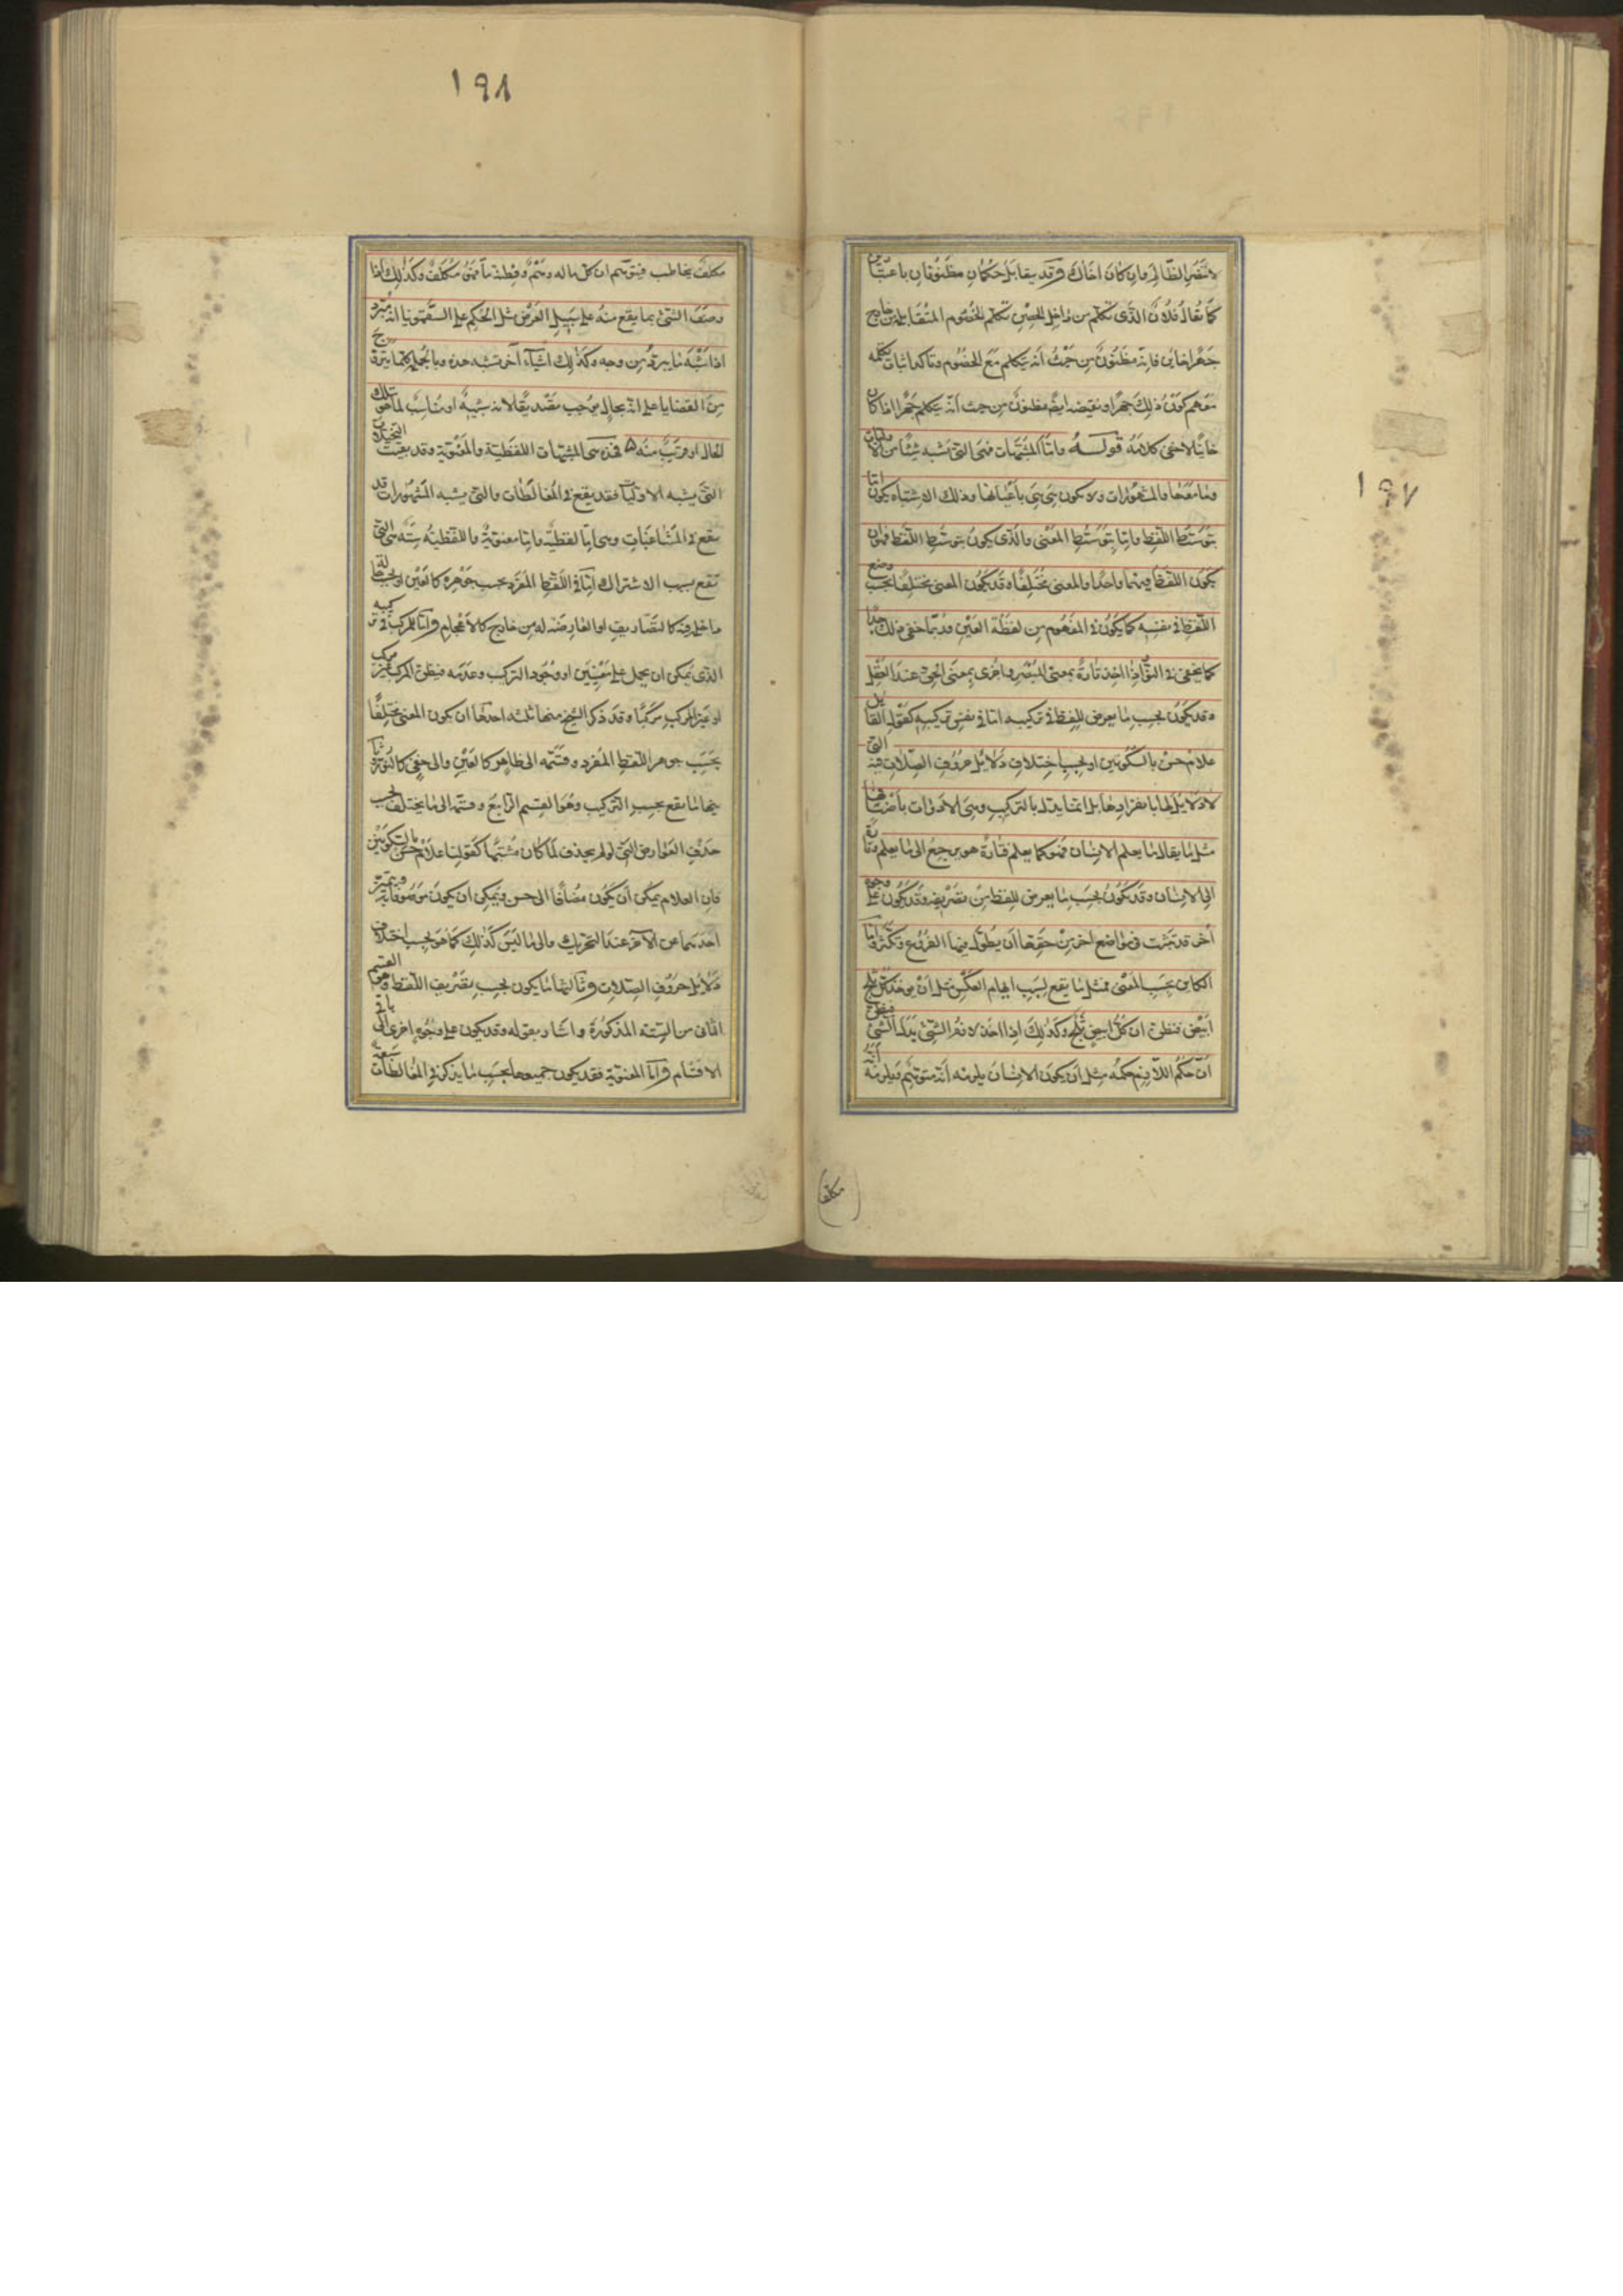 ١٩٧
لا تنصر الظالم وان كان اخاك وقد يتقابل حكمان مظنونان باعتبارين
كما يقال فلان الذى يتكلم من داخل الحصن يتكلم الخصوم المتقابلة من خارج
جهرا خاين فانه مظنون من حيث انه يتكلم مع الخصوم وتاكد اثبات تكلمه
معهم كون ذلك جهرا ونقيضه ايضا مظنون من حيث انه يتكلم جهرا اذا كان
خاينا لاخفى كلامه قوله واما المشبهات فهى التى تشبه شيئا من الاوليات
وما معها والمشهورات ولا يكون هى هى باعيانها وذلك الاشتباه يكون اما
بتوسط اللفظ واما بتوسط المعنى والذى يكون بتوسط اللفظ فهو ان
يكون اللفظ فيهما واحدا والمعنى مختلفا وقد يكون المعنى مختلفا بحسب وضع
اللفظ فى نفسه كما يكون فى المفهوم من لفظة العين وربما خفى ذلك جدا
كما يخفى فى النور اذا اخذ تارة بمعنى المبصر واخرى بمعنى الحق عند العقل
وقد يكون بحسب ما يعرض للفظ فى تركيبه اما فى نفس تركيبه كقول القايل
غلام حسن بالسكونين او بحسب اختلاف دلايل حروف الصلات فيه التى
لا دلايل لها بانفرادها بل انما يدل بالتركيب وهى الادوات باصنافها
مثل ما يقال ما يعلم الانسان فهو كما يعلم فتارة هو يرجع الى ما يعلم وتارة
الى الانسان وقد يكون بحسب ما يعرض للفظ من تصريفه وقد يكون على وجوه
أخر قد تبينت فى مواضع اخر من حقها ان يطول فيها الفروع وتكثر واما
الكاين بحسب المعنى فمثل ما يقع بسبب ايهام العكس مثل ان يوخذ كل ثلج
ابيض فيظن ان كل ابيض ثلج وكذلك اذا اخذ لازم الشئ بدل الشئ فيظن
ان حكم اللازم حكمه مثل ان يكون الانسان يلزمه انه متوهم ويلزمه انه
مكلف
١٩٨
مكلف مخاطب فيتوهم ان كل ما له وهم وفطنة ما فهو مكلف وكذلك اذا
وصف الشئ بما يقع منه على سبيل العرض مثل الحكم على السقمونيا انه مبرد
اذا اشبه ما يبرد من وجه وكذلك اشياء اخر تشبه هذه وبالجملة كلما يتروج
من القضايا على انه بحال يوجب تصديقا لانه شبيه او مناسب لما هو بتلك
الحال او قريب منه فهذه هى المشبهات اللفظية والمعنوية وقد بقيت المخيلات
التى يشبه الاوليات فقد يقع فى المغالطات والتى يشبه المشهورات قد
يقع فى المشاغبات وهى اما لفظية واما معنوية واللفظية ستة هى التى
تقع بسبب الاشتراك اما فى اللفظ المفرد بحسب جوهره كالعين او بحسب حاله
داخلة فيه كالتصاريف او العارضة له من خارج كالاعجام واما المركب فى تركيبه
الذى يمكن ان يحمل على معنيين او وجود التركيب وعدمه فيظن المركب غير مركب
او غير المركب مركبا وقد ذكر الشيخ منها ثلثه احدها ان يكون المعنى مختلفا
بحسب جوهر اللفظ المفرد وقسمه الى ظاهر كالعين والى خفى كالنور وثا
نيها ما يقع بحسب التركيب وهو القسم الرابع وقسمه الى ما يختلف بحسب
حذف العوارض التى لو لم يحذف لما كان مشتبها كقولنا غلام حسن بالسكونين
فان الغلام يمكن ان يكون مضافا الى حسن ويمكن ان يكون موصوفا به ويتميز
احدهما عن الآخر عند التحريك والى ما ليس كذلك كما هو بحسب اختلاف
دلايل حروف الصلات وثالثها ما يكون بحسب تصريف اللفظ وهو القسم
الثانى من الستة المذكورة واشار بقوله وقد يكون على وجوه اخرى الى باقى
الاقسام واما المعنوية فقد يكون جميعها بحسب ما يذكر فى المغالطات